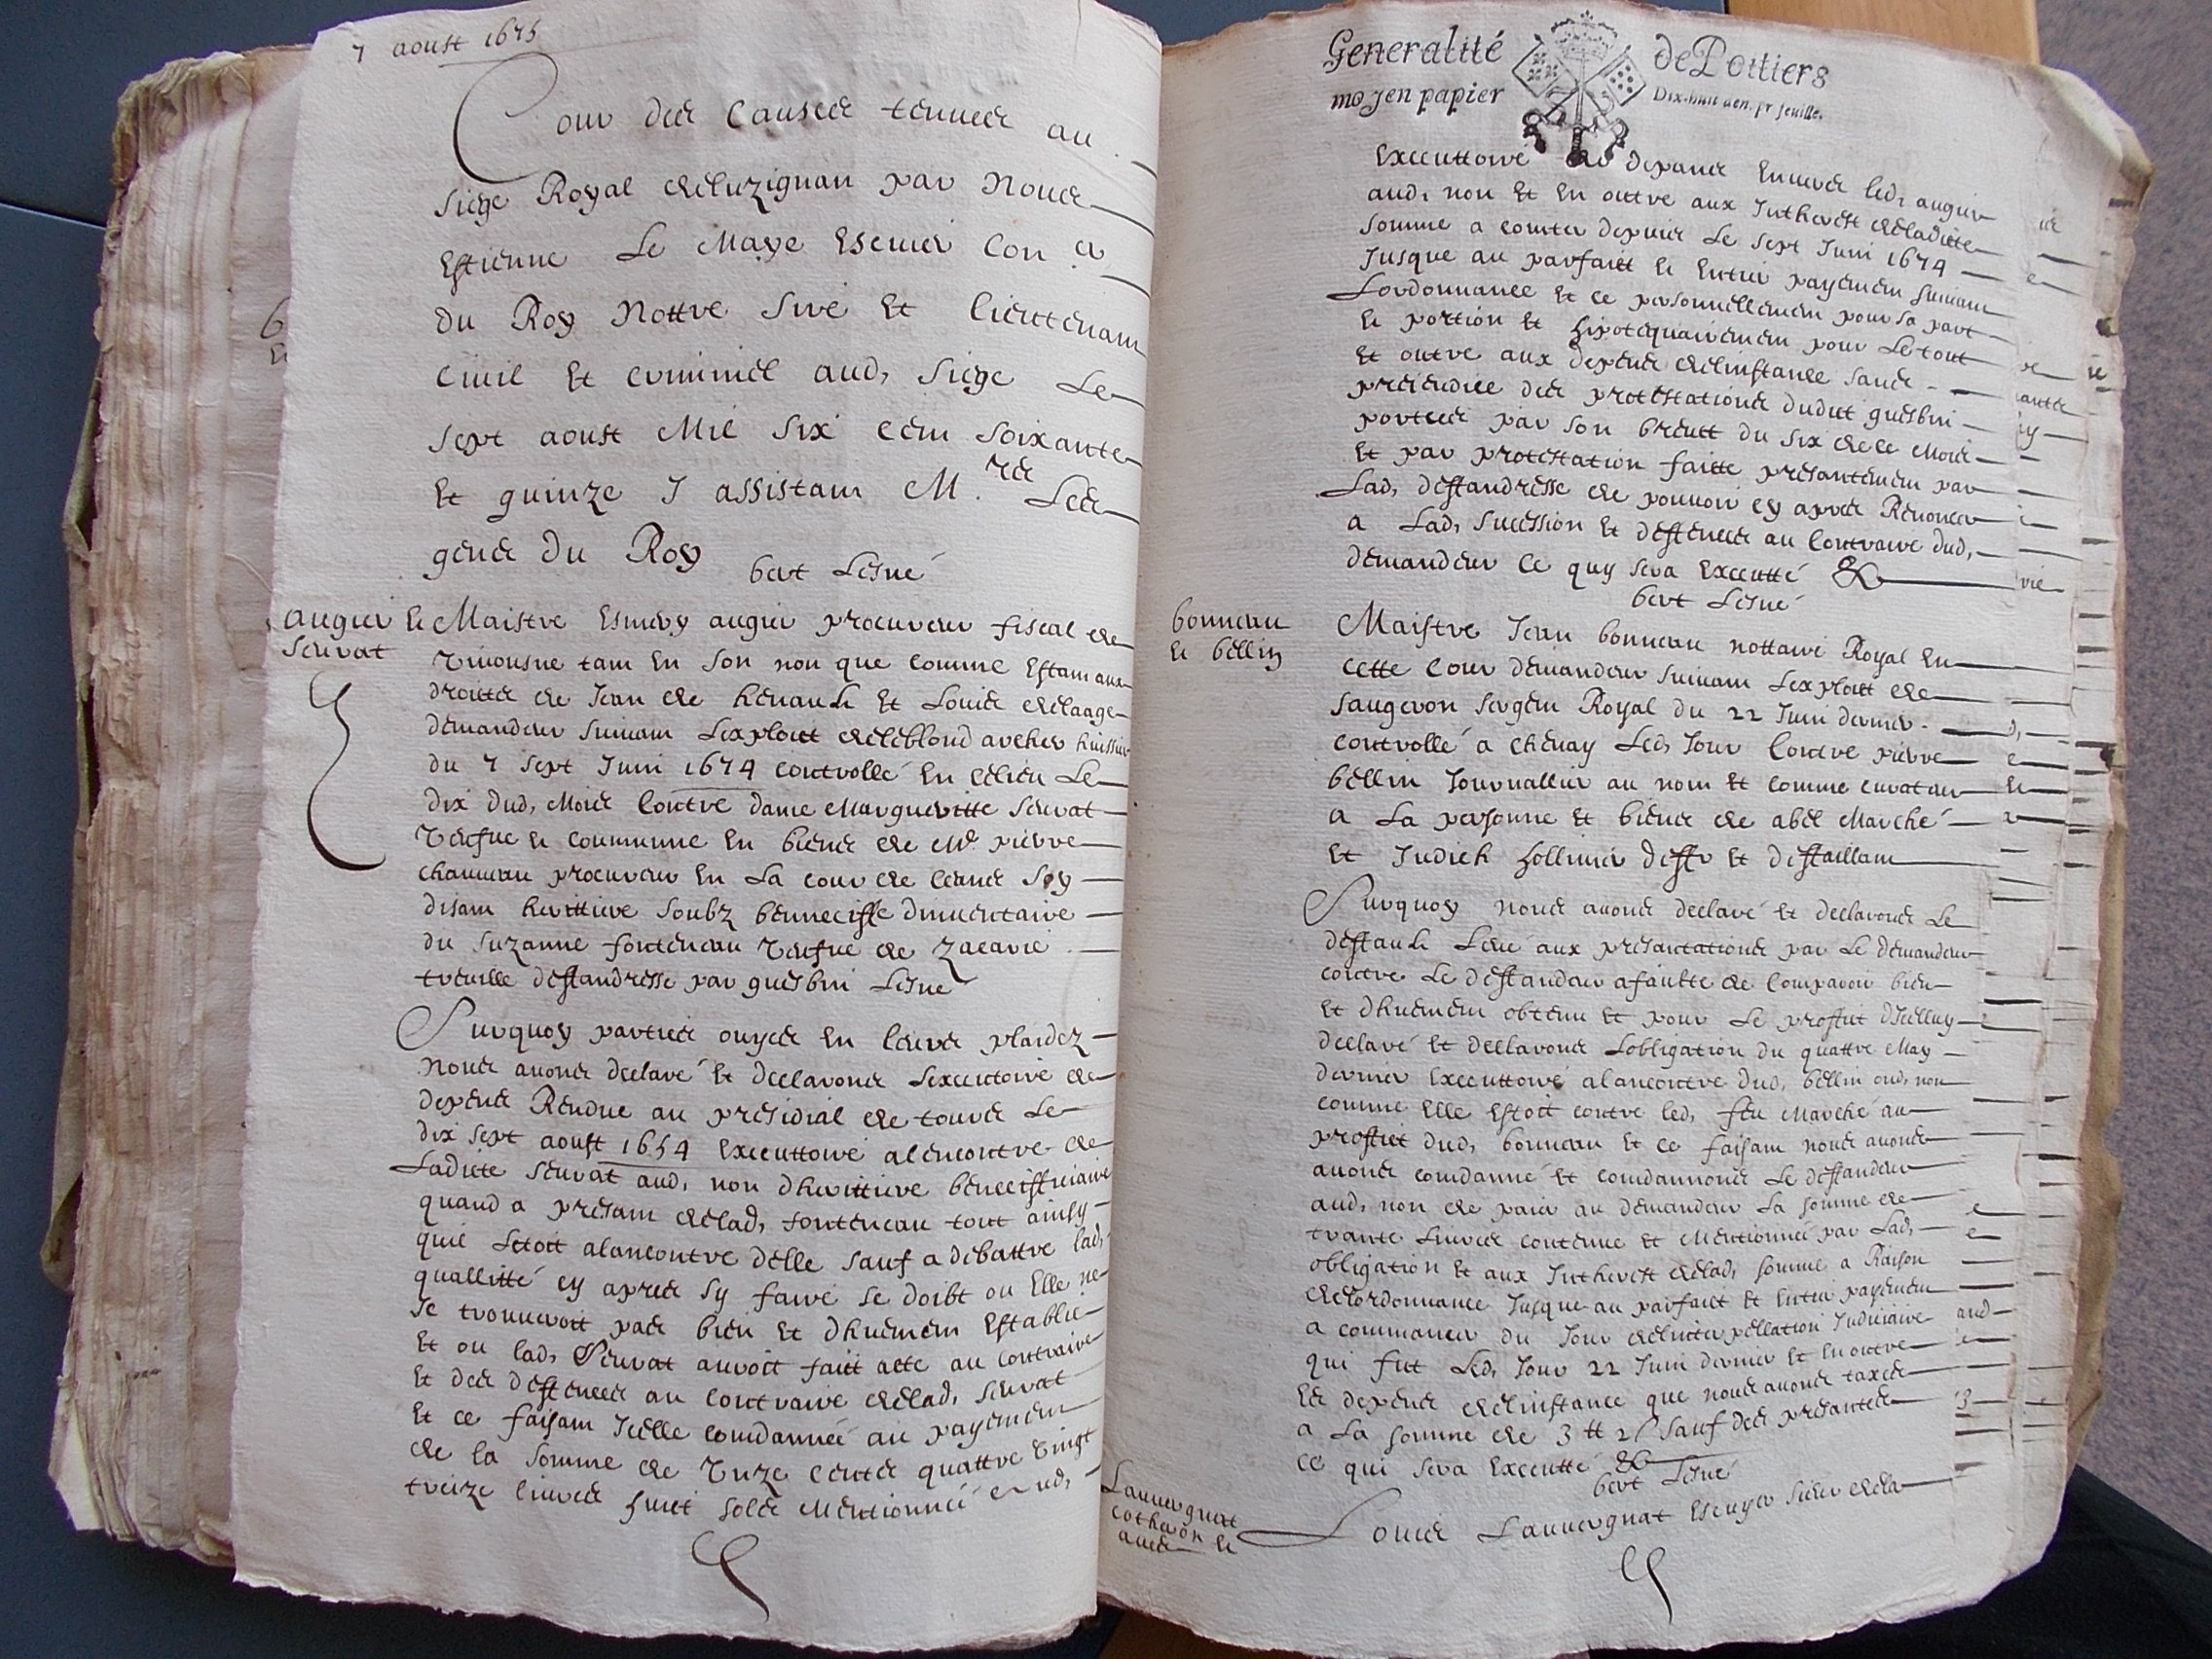 7 aoust 1675
Cour des Causes tenues au
siege Royal de luzignan par Nous
Estienne Le Maye Escuier Con.er
du Roy Nottre Sire Et lieutenant
Civil Et criminel aud, siege Le
sept aoust Mil Six cent soixante
Et quinze J assistant M.rs Les
gens du Roy
bert Lesné
augier Et
seurat
Maistre Esmery augier procureur fiscal de
tant En son non que comme Estant aux
droitz de Jean de henault Et Louis delaage
demandeur suivant Lexploict deleblond archer huissier
du 7 sept Juin 1674 controllé En celieu Le
dix dud, Mois Contre dame Margueritte seurat
Veufue Et commune En biens de Me pierre
chauveau procureur En La cour de ceans soy
disant herittiere soubz benneciffe dinventaire
du suzanne fonteneau Veufue de Zacarie
treuille deffandresse par guesbin Lesné
Surquoy parties ouyes En leurs plaidez
Nous avons declaré Et declarons Lexecutoire de
depens Rendue au presidial de tours Le
dix sept aoust 1654 Executtoire alencontre de
Ladicte seurat aud, non dherittiere beneciffieiaire
quand a presant delad, fonteneau tout ainsy
quil Letoit alancontre delle sauf a debattre lad,
quallitté cy apres sy faire se doibt ou Elle ne
se trouveroit pas bien Et dhuement Establie
Et ou lad, Seurat auroit faitt acte au contraire
Et des deffences au contraire delad, seurat
Et ce faisant Icelle condannée au payement
de la somme de Unze cents quattre Vingt
treize livres huict solz Mentionnée
Generalité de Poitiers
moyen papier Dix-huit den. pr feuille.
Executtoire de depans Envers led, augier
aud, non Et En outtre aux Intherest deladitte
somme a comter depuis Le sept Juin 1674
Jusque au parfaitt Et Entier payement suivant
Lordonnance Et ce personnellement pour sa part
Et portion Et hipotequairement pour Le tout
Et outre aux depens delinstance sans
prejudice des protestations dudit guesbin
portees par son breutt du six de ce Mois
Et par protestation faitte presantement par
Lad, deffandresse de pouvoir cy apres Renoncer
a Lad, sucession Et deffences au Contraire dud,
demandeur Ce quy sera Executté &
bert Lesné
bonneau
Et bellin
Maistre Jean bonneau nottaire Royal En
cette Cour demandeur suivant Lexploitt de
saugeron sergent Royal du 22 Juin dernier
controllé a chenay Led, Jour Contre pierre
bellin Journallier au nom Et comme curateur
a La personne Et biens de abel Marché
Et Judich hollivier deffr Et deffaillant
Surquoy nous avons declaré Et declarons Le
deffault Levé aux presantations par Le demandeur
contre Le deffandeur afaulte de Comparoir bien
Et dhuement obtenu Et pour Le proffit dIcelluy
declaré Et declarons Lobligation du quattre May
dernier Executtoire alancontre dud, bellin aud, non
comme Elle Estoit contre led, feu Marché au
proffict dud, bonneau Et ce faisant nous avons
avons condanné Et condannons Le deffandeur
aud, non de paier au demandeur La somme de
trante Livres contenue Et Mentionnée par Lad,
obligation Et aux Intherest delad, somme a Raison
delordonnance Jusque au parfaict Et Entier payement
a commancer du Jour delinterpellation Judiciaire
qui fut Led, Jour 22 Juin dernier Et En outre
Es depens delinstance que nous avons taxés
a La somme de 3 tt 2 s sauf des presantes
ce qui sera Executté &
bert Lesné
Lauvergnat
cotheron Et
aues
Louis Lauvergnat Escuyer sieur dela